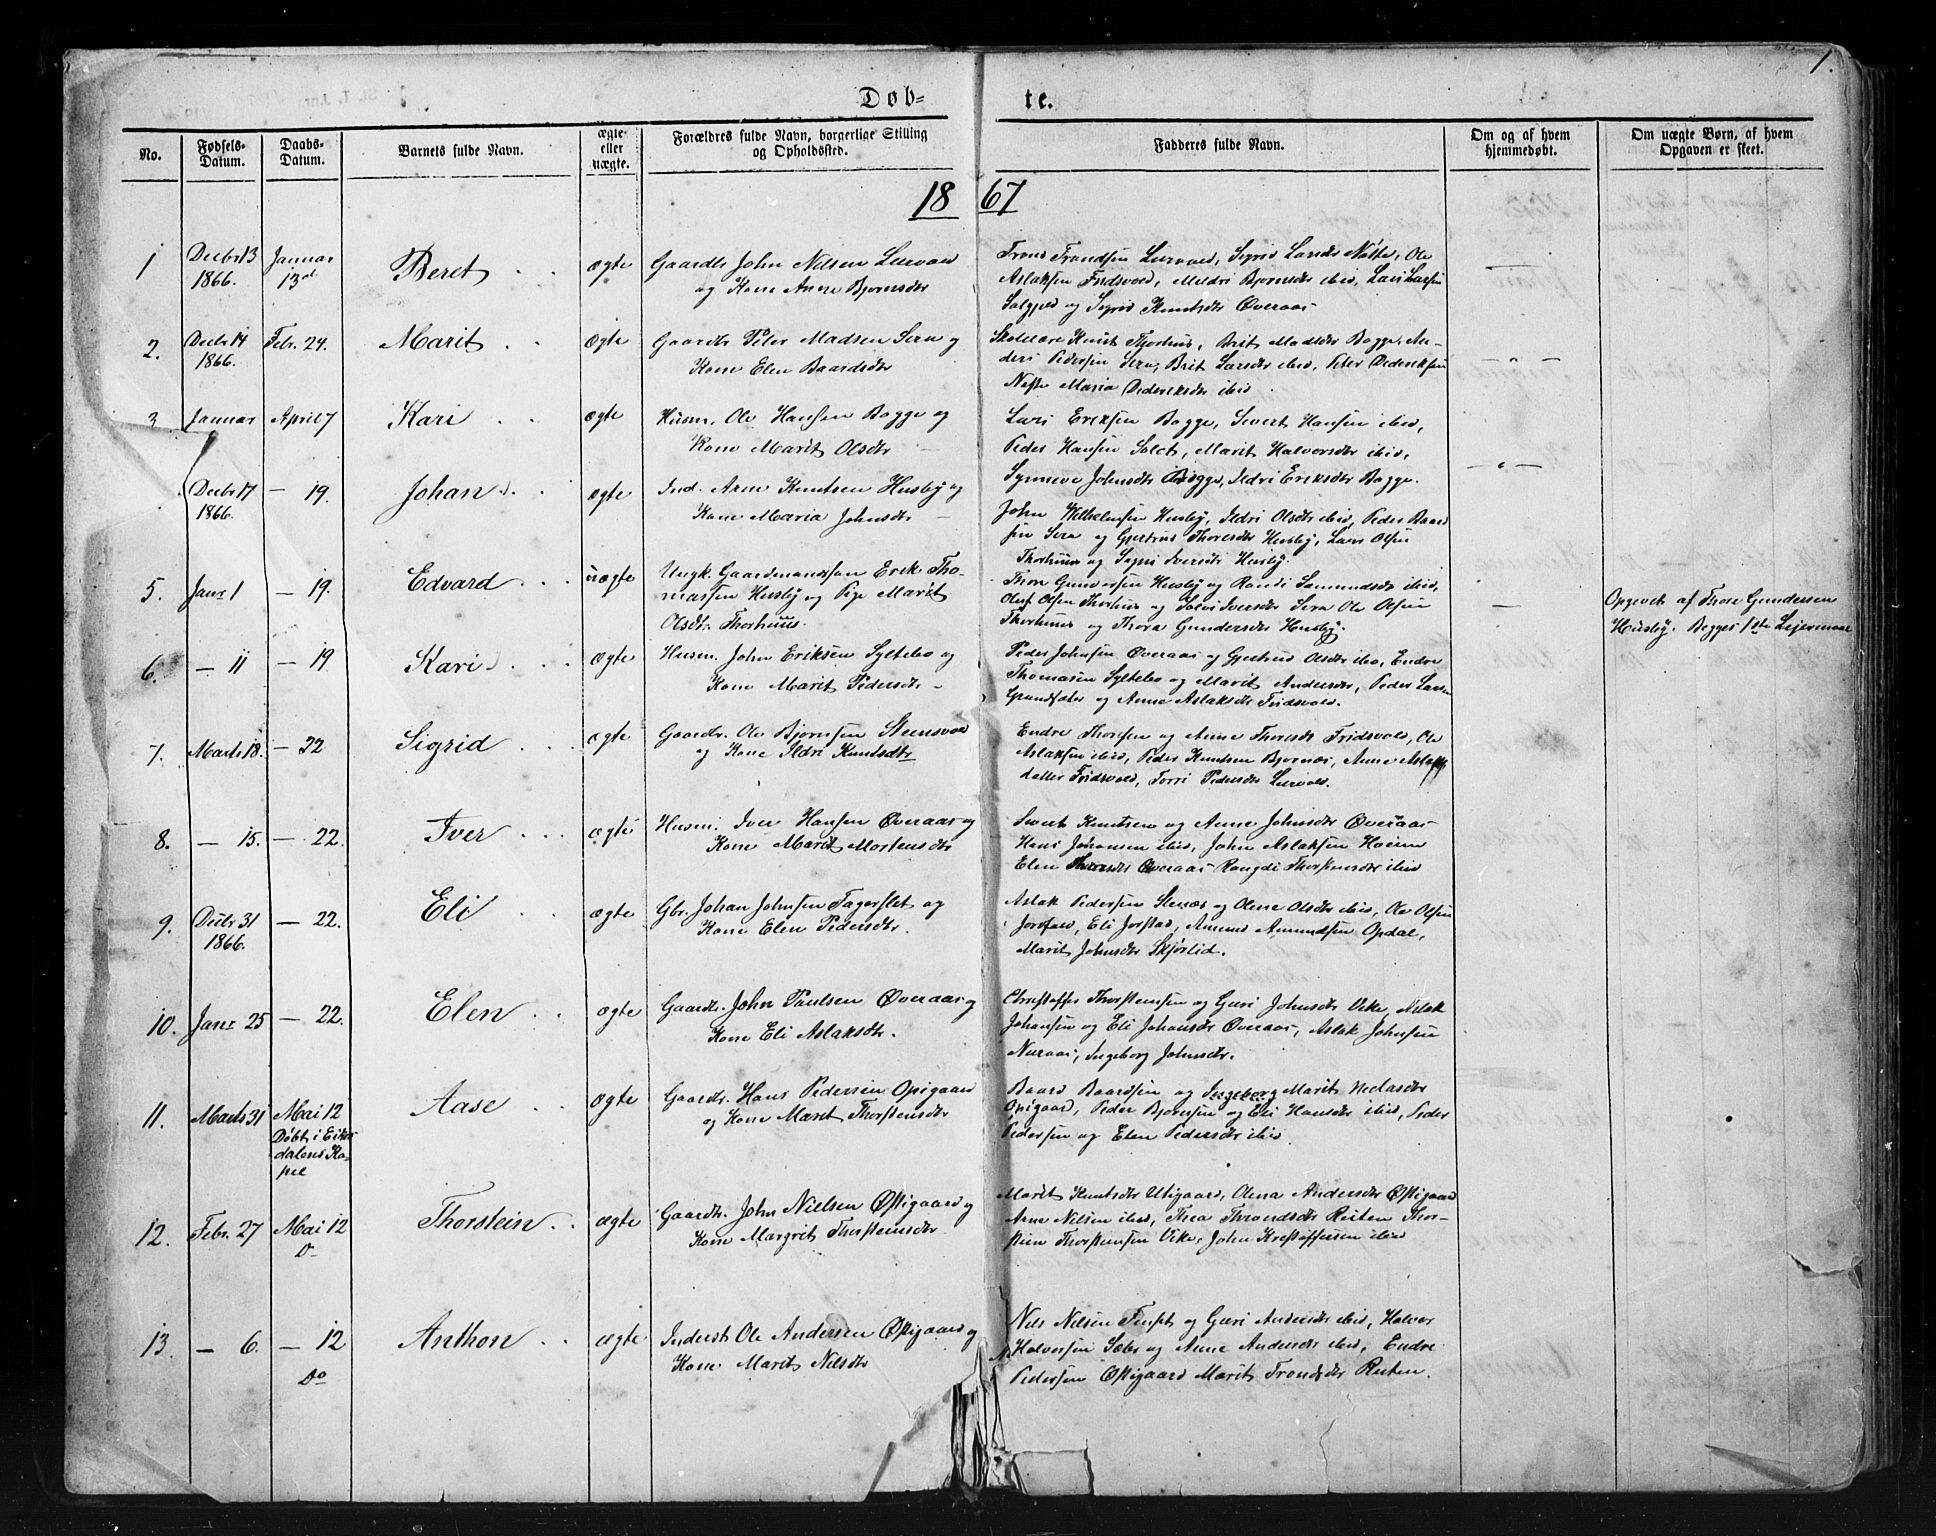 1.
Døb- te.
No. Fødsels-Datum. Daabs-Datum. Barnets fulde Navn. ægte eller uægte. Forældres fulde Navn, borgerlige Stilling og Opholdssted. Fadderes fulde Navn. Om og af hvem hjemmedøbt. Om uægte Børn, af hvem Opgaven er skeet.
18 67
1 Decbr 13 1866. Januar 13d Beret ægte Gaardb. John Nilsen Lervold
og Kone Anne Bjørnsdtr
Trond Trondsen Lervold, Sigrid Larsdtr Nøste, Ole
Aslaksen Fridsvold, Mildri Bjørnsdtr ibid, Lars Larsen
og Sigrid Knutsdtr Øveraas
2. Decbr 14 1866. Febr. 24. Marit ægte Gaardbr Peter Madsen Sera og
Kone Elen Baardsdtr
Skolelærer Knut Thorhus, Brit Madsdtr Bogge, An-
ders Pedersen Sera, Brit Larsdtr ibid, Peter Dideriksen
Nøste Maria Dideriksdtr ibid.
3. Januar April 7 Kari ægte Husm. Ole Hansen Bogge og
Kone Marit Olsdtr
Lars Eriksen Bogge, Sivert Hansen ibid,
Peder Hansen Marit Halvorsdtr ibid,
Synneve Johnsdtr Bogge, Ildri Eriksdtr Bogge.
Decbr 17 1866. — 19. Johan ægte Ind. Arne Knutsen Husby og
Kone Maria Johnsdtr
John Wilhelmsen Husby, Ildri Olsdtr ibid, Peder Baard
sen Sera og Gjertrud Thoresdtr Husby, Lars Olsen
Thorhuus og Iversdtr Husby.
5. Janr 1 — 19. Edvard uægte Ungk. Gaardmandssøn Erik Tho-
massen Husby og Pige Marit
Olsdtr. Thorhuus.
Thore Gundersen Husby og Randi Samundsdtr ibid,
Oluf Olsen Thorhus og Solvi Iversdtr Sera Ole Olsen
Thorhuus og Thora Gundersdtr Husby.
Opgivet af Thore Gundersen
Husby. Begges 1ste Leiermaal
6. — 11 — 19 Kari ægte Husm. John Eriksen Syltebø og
Kone Marit Pedersdtr
Peder Johnsen Øveraas og Gjertrud Olsdtr ibid, Endre
Thomasen Syltebø og Marit Andersdtr, Peder Larsen
Grandsæter og Anne Aslaksdtr Fridsvold.
7. Marts 18. — 22 Sigrid ægte Gaardbr. Ole Bjørnsen Steensvold
og Kone Ildri Knutsdtr
Endre Thorsen og Anne Thoresdtr Fridsvold, Ole
Aslaksen ibid, Peder Knutsen Bjørnes, Anne Aslaks
datter Fridsvold, Pedersdtr Lervold.
8. — 15. — 22. Iver ægte Husm. Iver Hansen Øveraas og
Kone Marit Mortensdtr
Sivert Knutsen og Anne Johnsdtr Øveraas
Hans Johansen ibid, John Aslaksen
Elen Øveraas Rangdi Thorstensdtr ibid
9. Decbr 31 1866. — 22. Eli ægte Gbr. Johan Johnsen Fagerslet og
Kone Elen Pedersdtr.
Aslak Pedersen og Olene Olsdtr ibid, Ole Olsen
Eli Jorstad, Amund Amundsen Opdal,
Marit Johnsdtr Skjørlid.
10. Janr 25 — 22. Elen ægte Gaardbr. John Paulsen Øveraas og
Kone Eli Aslaksdtr.
Christoffer Thorstensen og Guri Johnsdtr Vike,
Johansen og Eli Johansdtr Øveraas, Aslak Johnsen
Neraas, Ingeborg Johnsdtr.
11. Marts 31 Mai 12 Døbt i Eikis dalens Ka- pel Aase ægte Gaardbr. Hans Pedersen Opigaard
og Kone Marit Thorstensdtr
Baard Baardsen og Ingeborg Marit
Opigaard, Peder Bjørnsen og Eli Hansdtr ibid, Peder
Pedersen og Elen Pedersdtr ibid.
12. Febr. 27 Mai 12 Do Thorstein ægte Gaardbr. John Nielsen Østigaard og
Kone Margrit Thorstensdtr
Marit Knutsdtr Utigaard, Olena Andersdtr Østigaard
Arne Nilsen ibid, Thea Throndsdtr Reiten Thor-
stein Thorstensen Vike, John Kristoffersen ibid
13. — 6. — 12 Do Anthon ægte Inderst Ole Andersen Østigaard og
Kone Marit Nilsdtr
Nils Nilsen og Guri Andersdtr ibid, Halvor
Halvorsen og Anne Andersdtr ibid, Endre
Pedersen Østigaard Marit Trondsdtr Reiten.